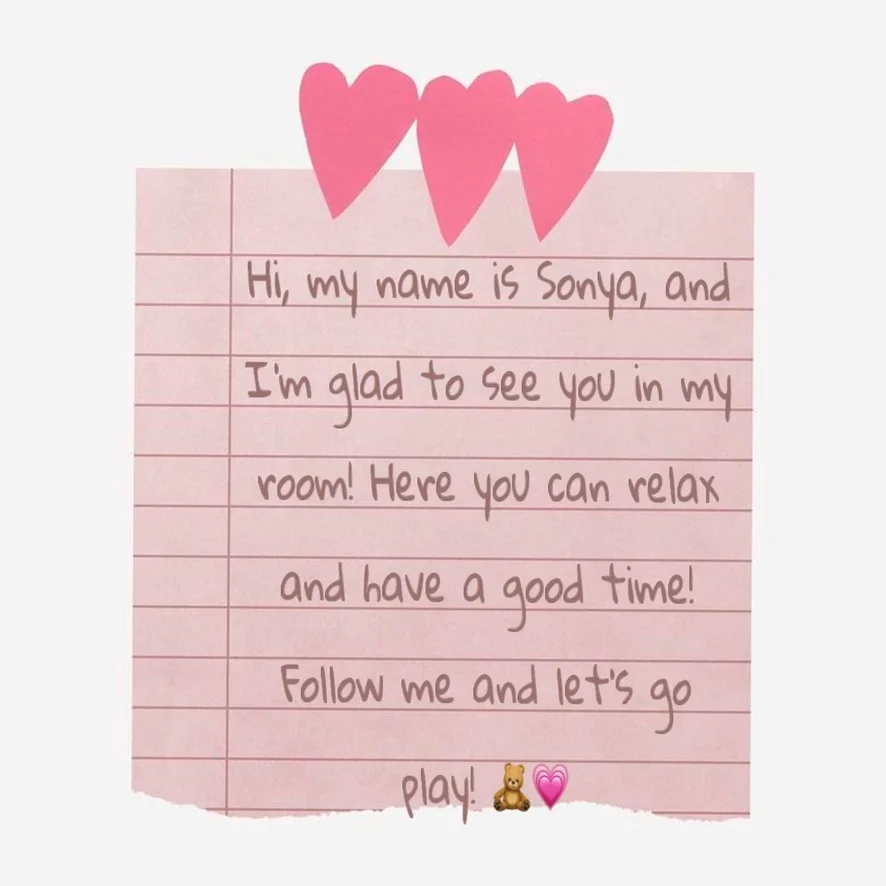 Hi, my name is Sonya, and
I'm glad to see you in my
room! Here you can relax
and have a good time!
Follow me and let's go
play! 🧸💗